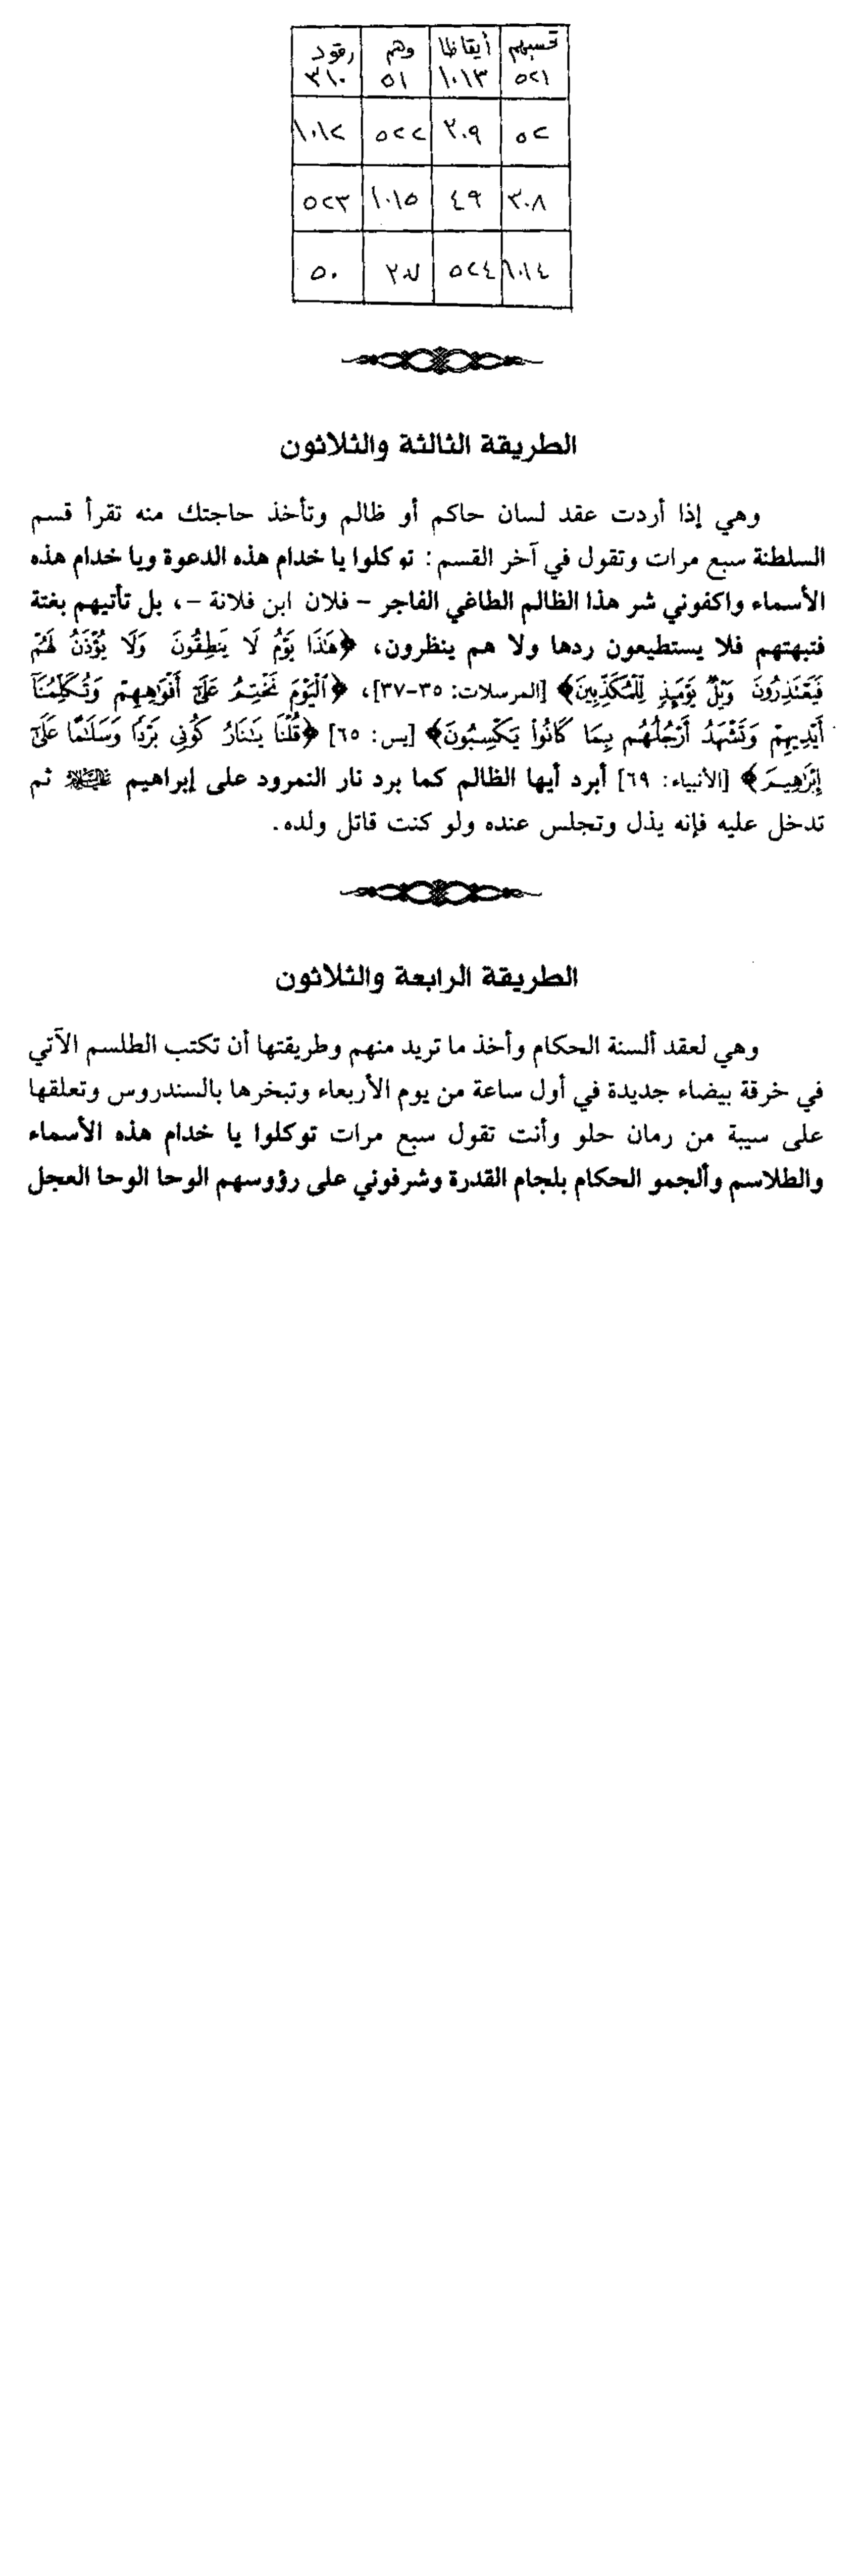 تحسبهم أيقاظا وهم رقود
٥٢١ ١٠١٣ ٥١ ٣١٠
٥٢ ٣٠٩ ٥٢٢ ١٠١٢
٣٠٨ ٤٩ ١٠١٥ ٥٢٣
١٠١٤ ٥٢٤ ٥٠
الطريقة الثالثة والثلاثون
وهي إذا أردت عقد لسان حاكم أو ظالم وتأخذ حاجتك منه تقرأ قسم
السلطنة سبع مرات وتقول في آخر القسم: توكلوا يا خدام هذه الدعوة ويا خدام هذه
الأسماء واكفوني شر هذا الظالم الطاغي الفاجر – فلان ابن فلانة –، بل تأتيهم بغتة
فتبهتهم فلا يستطيعون ردها ولا هم ينظرون، ﴿هَٰذَا يَوْمُ لَا يَنطِقُونَ وَلَا يُؤْذَنُ لَهُمْ
فَيَعْتَذِرُونَ وَيْلٌ يَوْمَئِذٍ لِّلْمُكَذِّبِينَ﴾ [المرسلات: ٣٥-٣٧]، ﴿ٱلْيَوْمَ نَخْتِمُ عَلَىٰٓ أَفْوَٰهِهِمْ وَتُكَلِّمُنَآ
أَيْدِيهِمْ وَتَشْهَدُ أَرْجُلُهُم بِمَا كَانُوا۟ يَكْسِبُونَ﴾ [يس: ٦٥] ﴿قُلْنَا يَٰنَارُ كُونِى بَرْدًا وَسَلَٰمًا عَلَىٰٓ
إِبْرَٰهِيمَ﴾ [الأنبياء: ٦٩] أبرد أيها الظالم كما برد نار النمرود على إبراهيم عليه السلام ثم
تدخل عليه فإنه يذل وتجلس عنده ولو كنت قاتل ولده.
الطريقة الرابعة والثلاثون
وهي لعقد ألسنة الحكام وأخذ ما تريد منهم وطريقتها أن تكتب الطلسم الآتي
في خرقة بيضاء جديدة في أول ساعة من يوم الأربعاء وتبخرها بالسندروس وتعلقها
على سيبة من رمان حلو وأنت تقول سبع مرات توكلوا يا خدام هذه الأسماء
والطلاسم وألجمو الحكام بلجام القدرة وشرفوني على رؤوسهم الوحا الوحا العجل